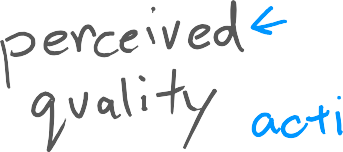 perceived ←
quality
acti